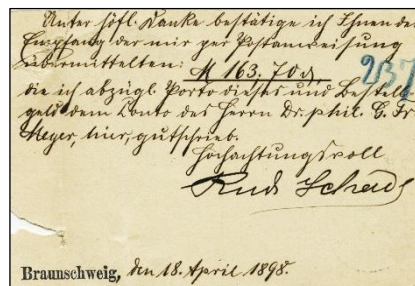 Unter höfl. Danke bestätige ich Ihnen den
Empfang der mir per Postanweisung
übermittelten:
M 163.70 d.
237
die ich abzügl. Porto dieses und Bestell
geld dem Conto des Herrn Dr. phil. G. Fr
Meyer, hier, gutschrieb.
Hochachtungsvoll
Rud Schade
Braunschweig, den 18. April 1898.